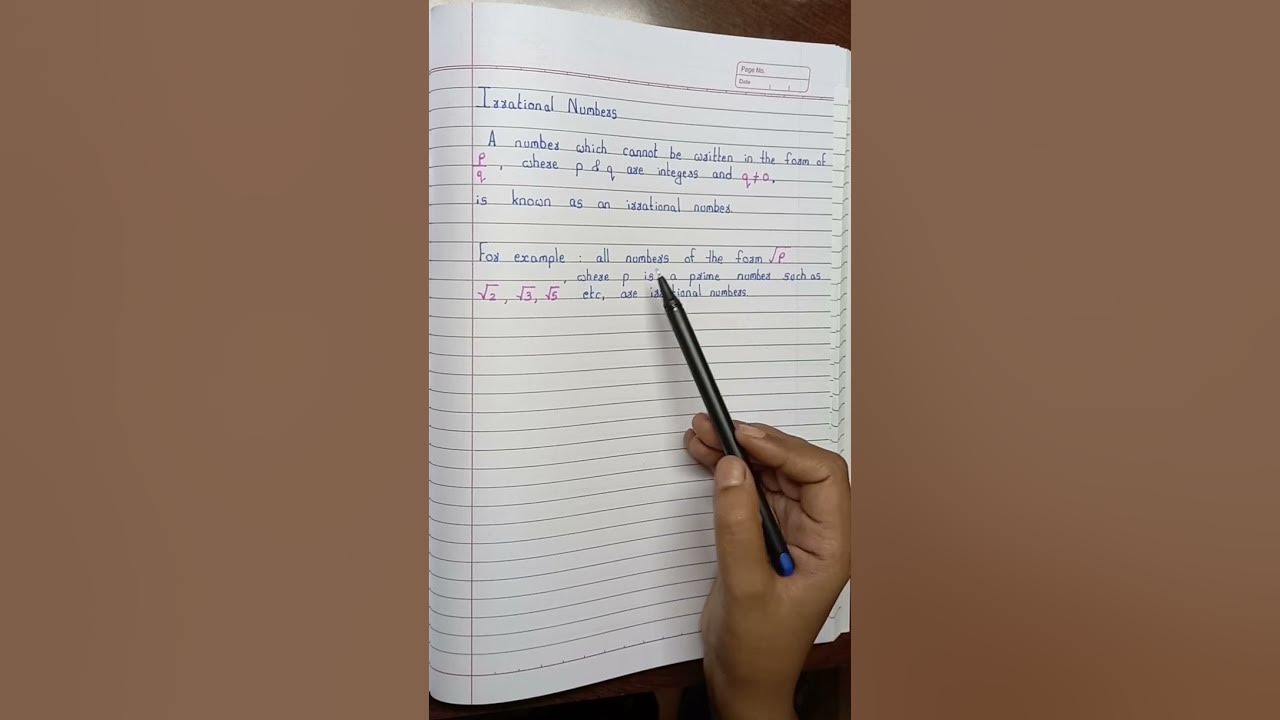 Page No.
Date
Irrational Numbers
A number which cannot be written in the form of
p/q, where p & q are integers and q≠0,
is known as an irrational number.
For example : all numbers of the form √p
, where p is a prime number such as
√2, √3, √5 etc, are irrational numbers.